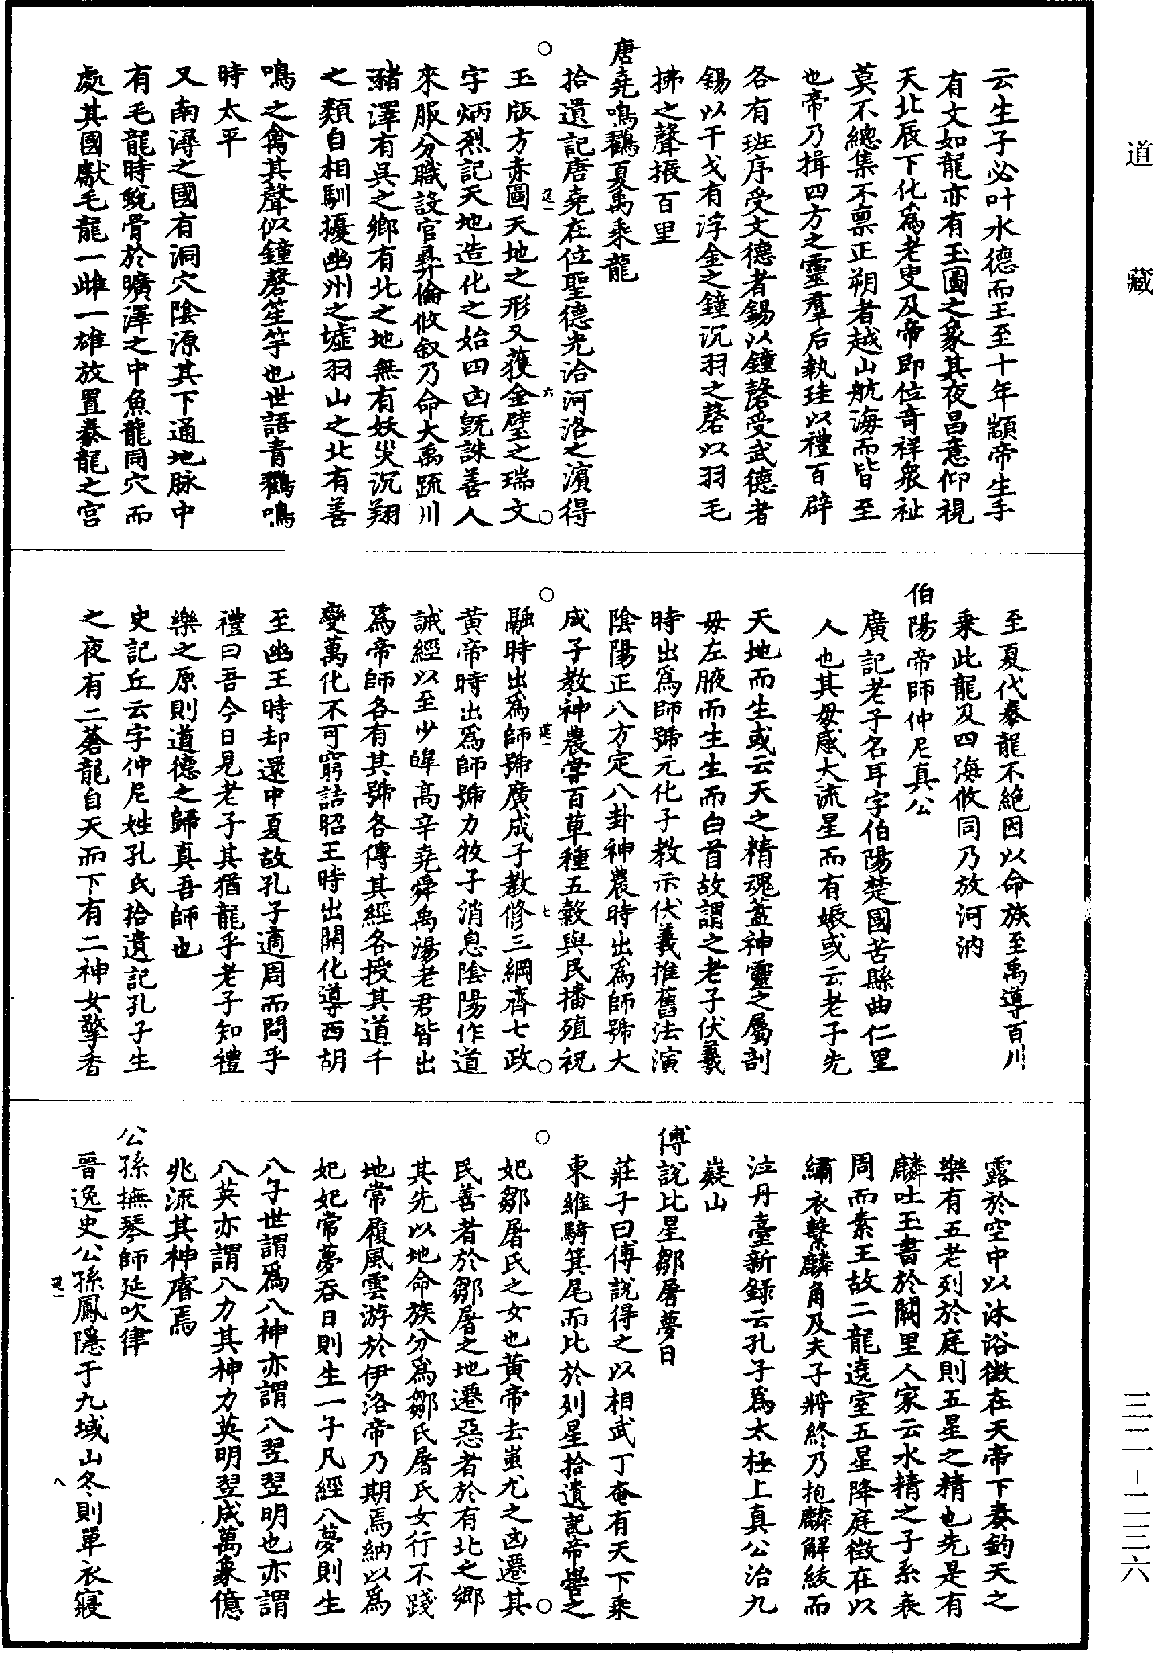 道藏
云生子必叶水德而王至十年顓帝生手
有文如龍亦有玉圖之象其夜昌意仰視
天北辰下化爲老叟及帝即位奇祥衆祉
莫不總集不禀正朔者越山航海而皆至
也帝乃揖四方之靈羣后執珪以禮百辟
各有班序受文德者錫以鐘磬受武德者
錫以干戈有浮金之鐘沉羽之磬以羽毛
拂之聲振百里
唐堯鳴鸛夏禹乘龍
拾遺記唐堯在位聖德光洽河洛之濱得
玉版方赤圖天地之形又獲金璧之瑞文
字炳烈記天地造化之始四凶旣誅善人
來服分職設官彞倫攸叙乃命大禹疏川
豬澤有吳之鄉有北之地無有妖災沉翔
之類自相馴擾幽州之墟羽山之北有善
鳴之禽其聲似鐘磬笙竽也世語青鸛鳴
時太平
又南潯之國有洞穴陰源其下通地脉中
有毛龍時蛻骨於曠澤之中魚龍同穴而
處其國獻毛龍一雌一雄放置豢龍之宮
至夏代豢龍不絕因以命族至禹導百川
乘此龍及四海攸同乃放河汭
伯陽帝師仲尼真公
廣記老子名耳字伯陽楚國苦縣曲仁里
人也其母感大流星而有娠或云老子先
天地而生或云天之精魂蓋神靈之屬剖
母左腋而生生而白首故謂之老子伏羲
時出爲師號元化子教示伏羲推舊法演
陰陽正八方定八卦神農時出爲師號大
成子教神農嘗百草種五穀與民播殖祝
融時出爲師號廣成子教修三綱齊七政
黃帝時出爲師號力牧子消息陰陽作道
誡經以至少皥高辛堯舜禹湯老君皆出
爲帝師各有其號各傳其經各授其道千
變萬化不可窮詰昭王時出關化導西胡
至幽王時却還中夏故孔子適周而問乎
禮曰吾今日見老子其猶龍乎老子知禮
樂之原則道德之歸真吾師也
史記丘云字仲尼姓孔氏拾遺記孔子生
之夜有二蒼龍自天而下有二神女擎香
露於空中以沐浴徵在天帝下奏鈞天之
樂有五老列於庭則五星之精也先是有
麟吐玉書於闕里人家云水精之子系衰
周而素王故二龍遶室五星降庭徵在以
繡衣繫麟角及夫子將終乃抱麟解紱而
泣丹臺新錄云孔子爲太極上真公治九
嶷山
傅說比星鄒屠夢日
莊子曰傅說得之以相武丁奄有天下乘
東維騎箕尾而比於列星拾遺記帝嚳之
妃鄒屠氏之女也黃帝去蚩尤之凶遷其
民善者於鄒屠之地遷惡者於有北之鄉
其先以地命族分爲鄒氏屠氏女行不踐
地常履風雲游於伊洛帝乃期焉納以爲
妃妃常夢吞日則生一子凡經八夢則生
八子世謂爲八神亦謂八翌翌明也亦謂
八英亦謂八力其神力英明翌成萬象億
兆流其神睿焉
公孫撫琴師延吹律
晉逸史公孫鳳隱于九域山冬則單衣寢
六
七
八
三二－二三六